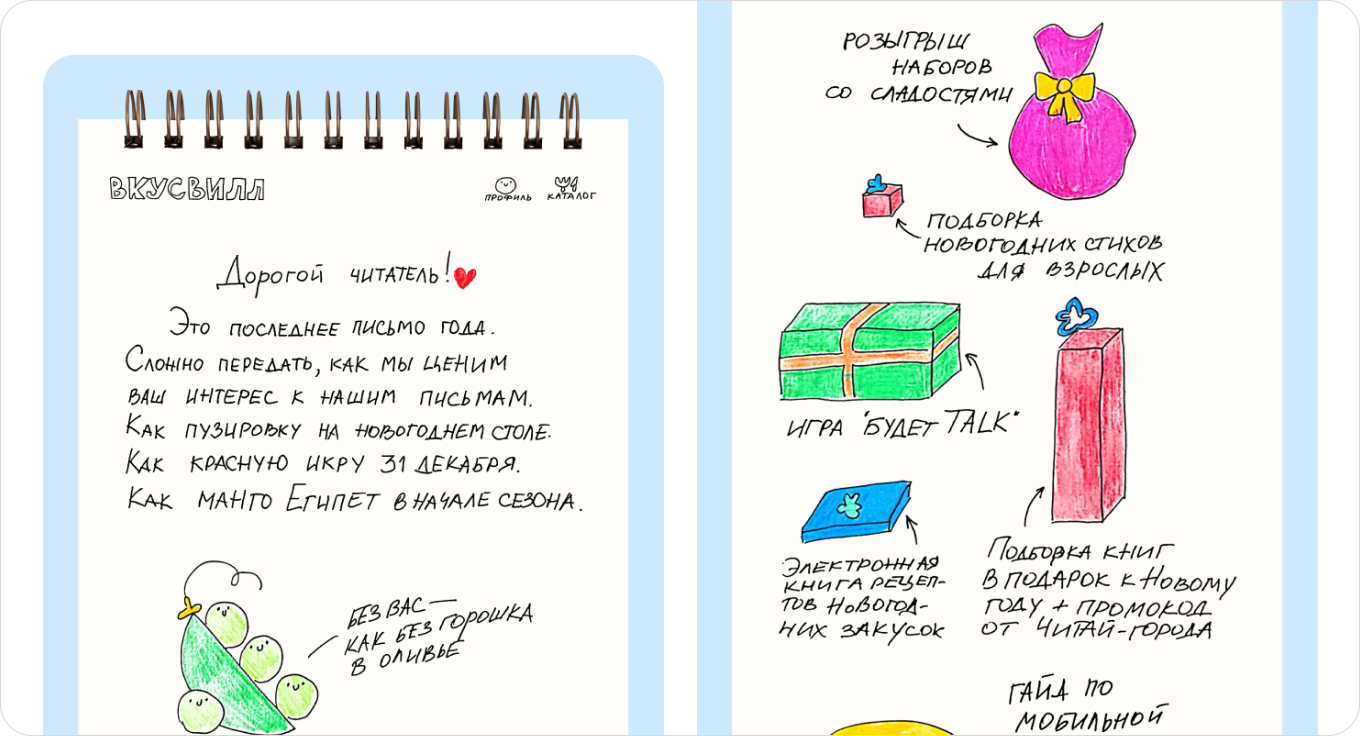 ВКУСВИЛЛ
ПРОФИЛЬ
КАТАЛОГ
Дорогой читатель!
Это последнее письмо года.
Сложно передать, как мы ценим
ваш интерес к нашим письмам.
Как пузировку на новогоднем столе.
Как красную икру 31 декабря.
Как манго Египет в начале сезона.
БЕЗ ВАС —
КАК БЕЗ ГОРОШКА
В ОЛИВЬЕ
РОЗЫГРЫШ
НАБОРОВ
СО СЛАДОСТЯМИ
ПОДБОРКА
НОВОГОДНИХ СТИХОВ
ДЛЯ ВЗРОСЛЫХ
ИГРА "БУДЕТ TALK"
ЭЛЕКТРОННАЯ
КНИГА РЕЦЕП-
ТОВ НОВОГОД-
НИХ ЗАКУСОК
Подборка книг
в подарок к Новому
году + промокод
от Читай-города
ГАЙД ПО
МОБИЛЬНОЙ